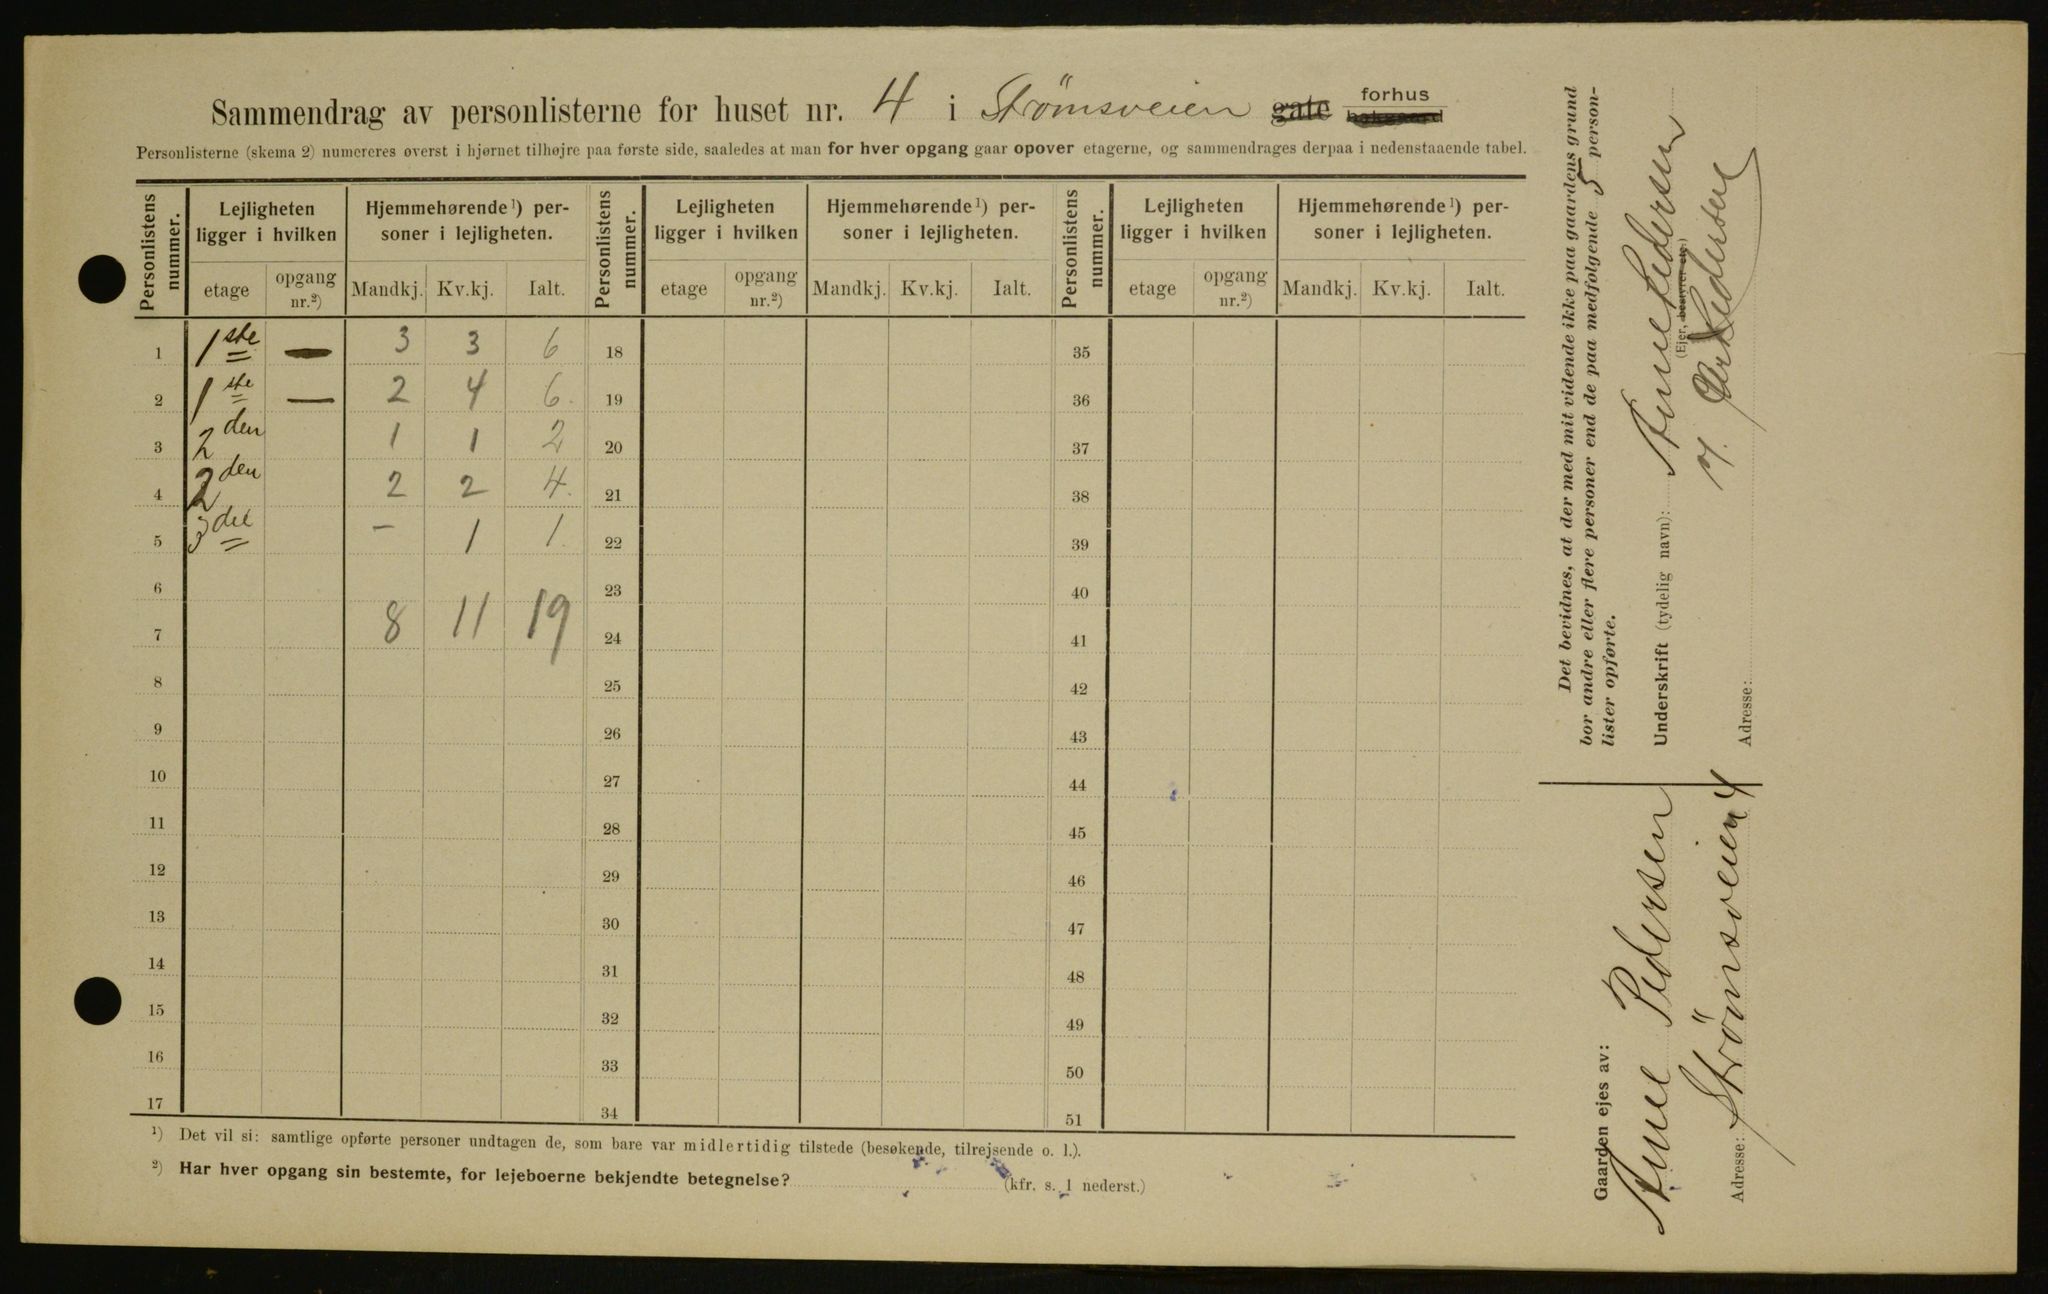 Sammendrag av personlisterne for huset nr. 4 i Strömsveien gate forhus bakgaard
Personlisterne (skema 2) numereres øverst i hjørnet tilhøjre paa første side, saaledes at man for hver opgang gaar opover etagerne, og sammendrages derpaa i nedenstaaende tabel.
Personlistens nummer. Lejligheten ligger i hvilken Hjemmehørende ¹) personer i lejligheten. Personlistens nummer. Lejligheten ligger i hvilken Hjemmehørende ¹) personer i lejligheten. Personlistens nummer. Lejligheten ligger i hvilken Hjemmehørende ¹) personer i lejligheten.
etage opgang nr.²) Mandkj. Kv.kj. Ialt. etage opgang nr.²) Mandkj. Kv.kj. Ialt. etage opgang nr.²) Mandkj. Kv.kj. Ialt.
1 1ste — 3 3 6 18 35
2 1ste — 2 4 6. 19 36
3 2den 1 1 2 20 37
4 2den 2 2 4. 21 38
5 3die — 1 1. 22 39
6 23 40
7 8 11 19 24 41
8 25 42
9 26 43
10 27 44
11 28 45
12 29 46
13 30 47
14 31 48
15 32 49
16 33 50
17 34 51
¹) Det vil si: samtlige opførte personer undtagen de, som bare var midlertidig tilstede (besøkende, tilrejsende o. l.).
²) Har hver opgang sin bestemte, for lejeboerne bekjendte betegnelse? (kfr. s. 1 nederst.)
Det bevidnes, at der med mit vidende ikke paa gaardens grund
bor andre eller flere personer end de paa medfølgende 5 person-
lister opførte.
Underskrift (tydelig navn): Anne Pedersen
(Ejer, bestyrer etc.)
Pedersen
Adresse:
Gaarden ejes av:
Anne Pedersen
Adresse: Strömsveien 4